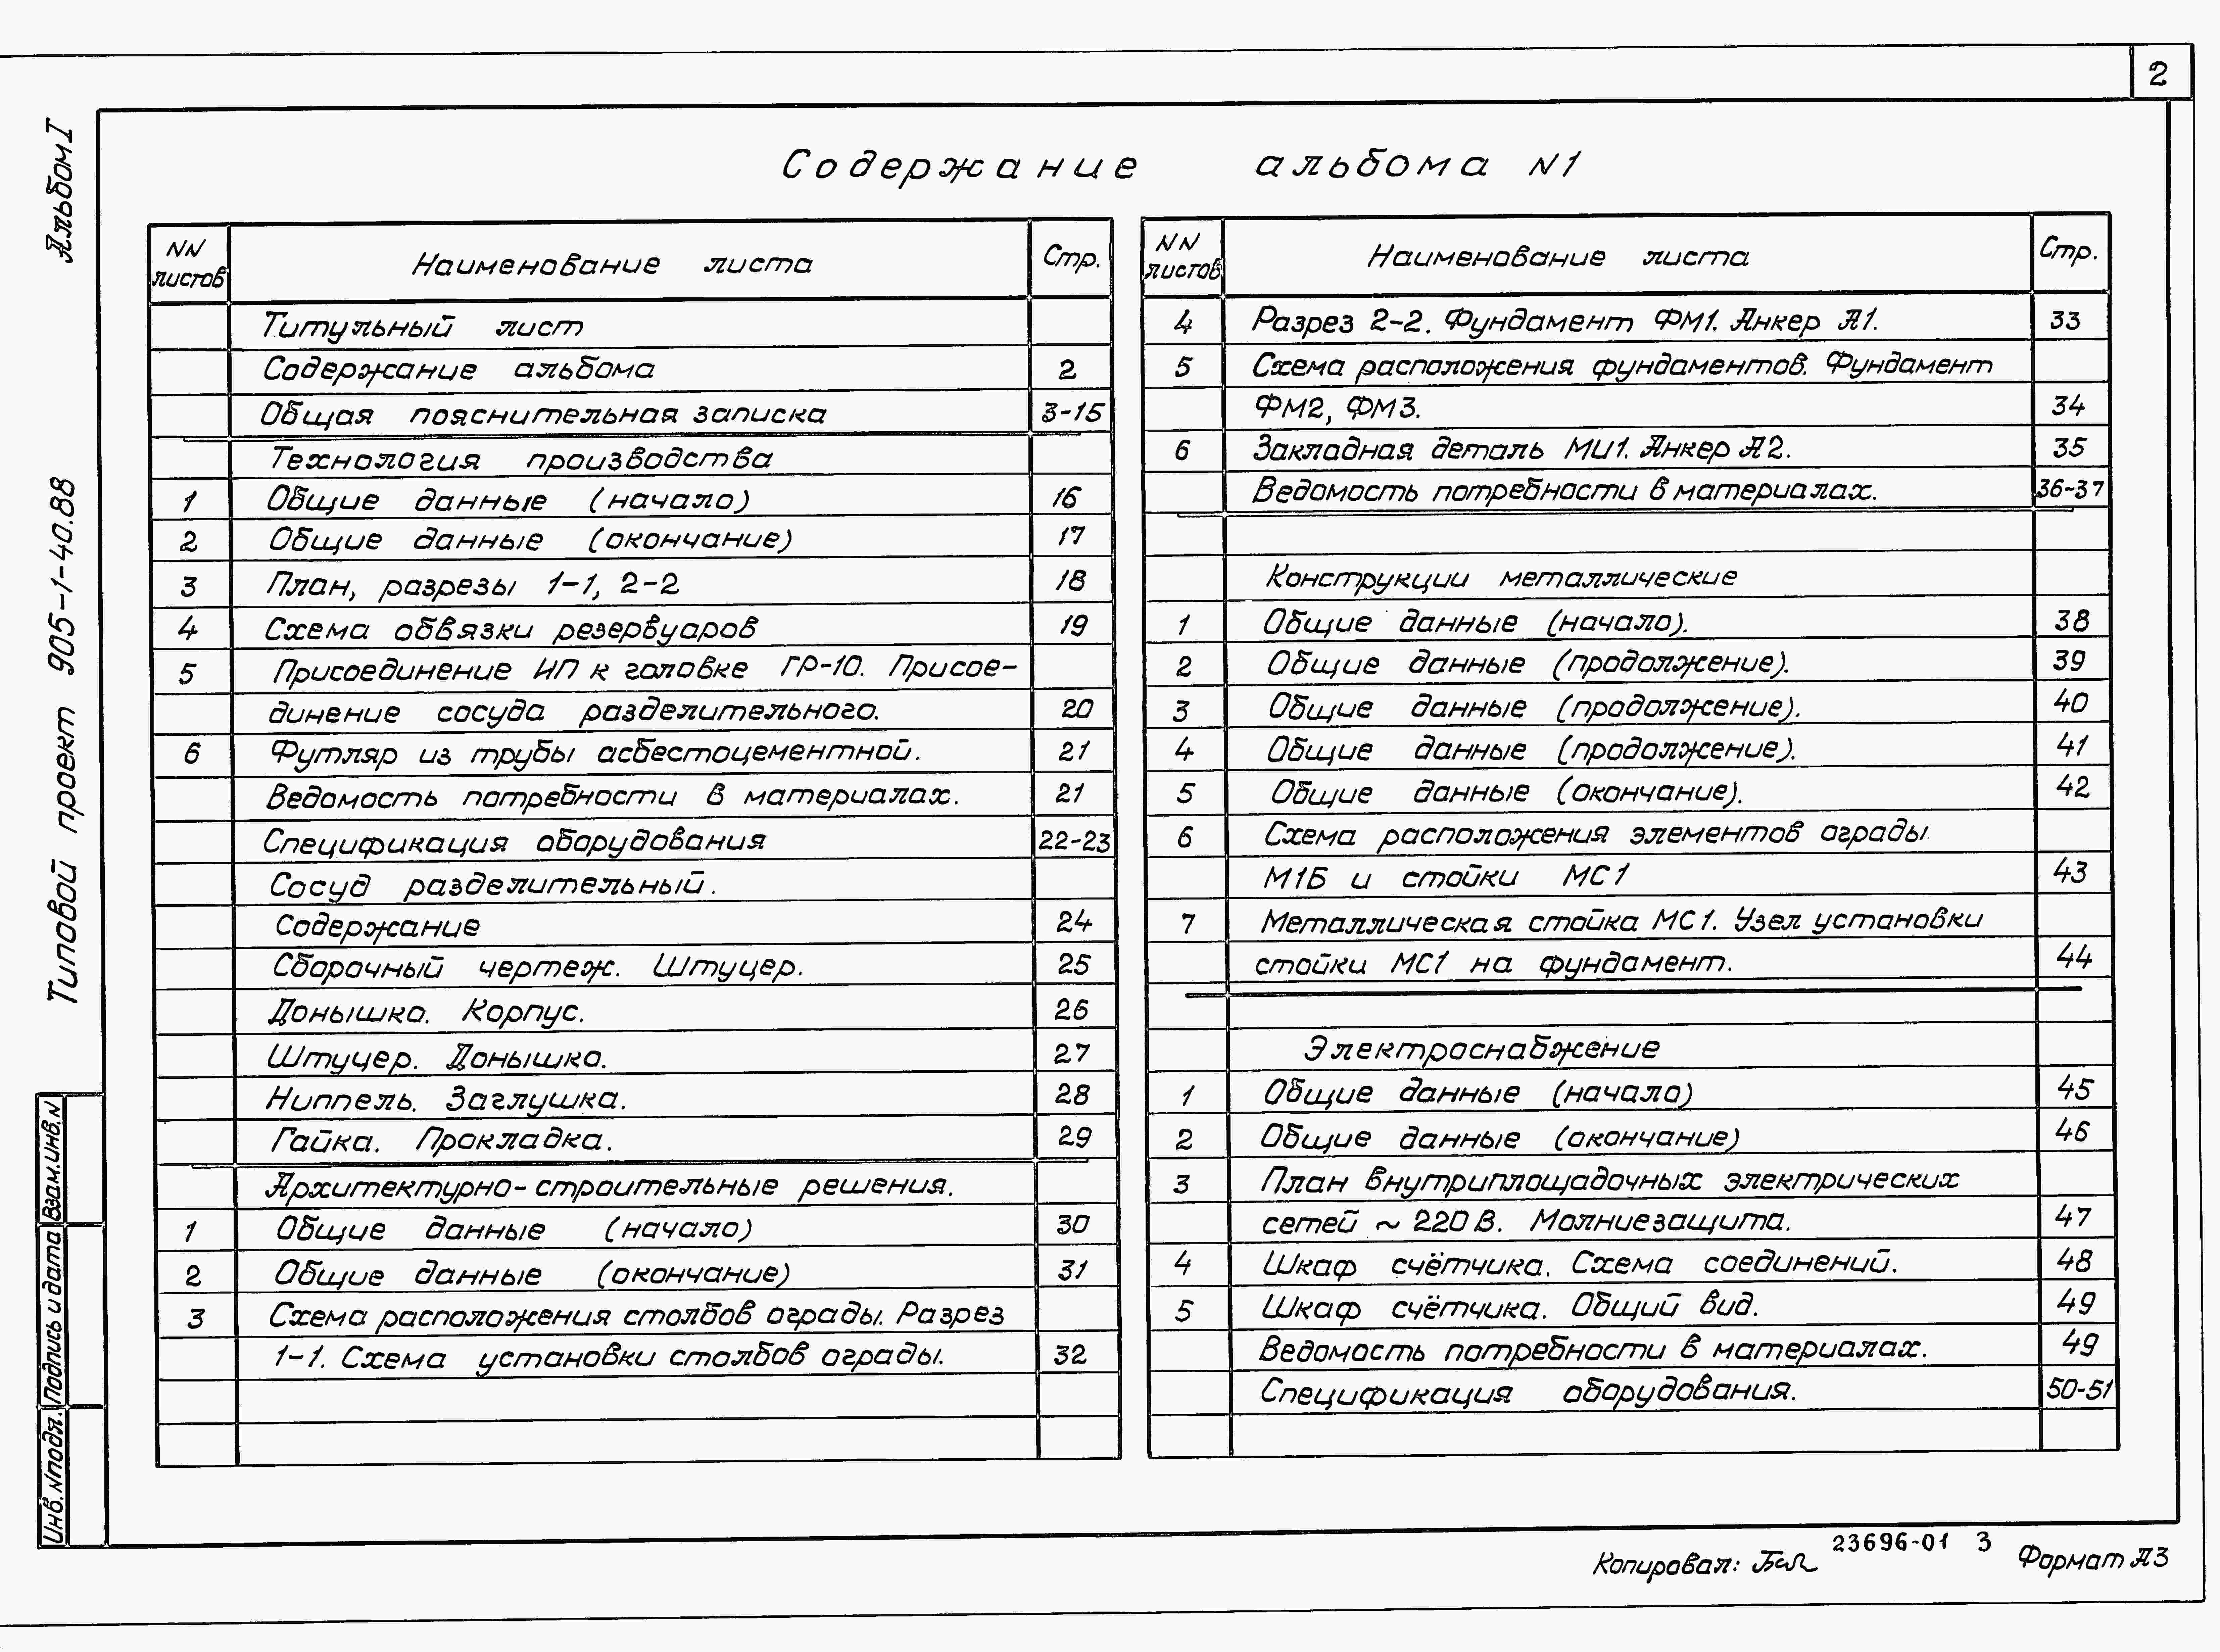 2
Альбом I
Типовой проект 905-1-40.88
Взам.инв.N
Подпись и дата
Инв.Nподл.
Содержание альбома N1
NN листов Наименование листа Стр.
Титульный лист
Содержание альбома 2
Общая пояснительная записка 3-15
Технология производства
1 Общие данные (начало) 16
2 Общие данные (окончание) 17
3 План, разрезы 1-1, 2-2 18
4 Схема обвязки резервуаров 19
5 Присоединение ИП к головке ГР-10. Присое-
динение сосуда разделительного. 20
6 Футляр из трубы асбестоцементной. 21
Ведомость потребности в материалах. 21
Спецификация оборудования 22-23
Сосуд разделительный.
Содержание 24
Сборочный чертеж. Штуцер. 25
Донышко. Корпус. 26
Штуцер. Донышко. 27
Ниппель. Заглушка. 28
Гайка. Прокладка. 29
Архитектурно-строительные решения.
1 Общие данные (начало) 30
2 Общие данные (окончание) 31
3 Схема расположения столбов ограды. Разрез
1-1. Схема установки столбов ограды. 32
NN листов Наименование листа Стр.
4 Разрез 2-2. Фундамент ФМ1. Анкер А1. 33
5 Схема расположения фундаментов. Фундамент
ФМ2, ФМ3. 34
6 Закладная деталь МИ1. Анкер А2. 35
Ведомость потребности в материалах. 36-37
Конструкции металлические
1 Общие данные (начало). 38
2 Общие данные (продолжение). 39
3 Общие данные (продолжение). 40
4 Общие данные (продолжение). 41
5 Общие данные (окончание). 42
6 Схема расположения элементов ограды
М1Б и стойки МС1 43
7 Металлическая стойка МС1. Узел установки
стойки МС1 на фундамент. 44
Электроснабжение
1 Общие данные (начало) 45
2 Общие данные (окончание) 46
3 План внутриплощадочных электрических
сетей ~ 220 В. Молниезащита. 47
4 Шкаф счётчика. Схема соединений. 48
5 Шкаф счётчика. Общий вид. 49
Ведомость потребности в материалах. 49
Спецификация оборудования. 50-51
Копировал: 23696-01 3 Формат А3